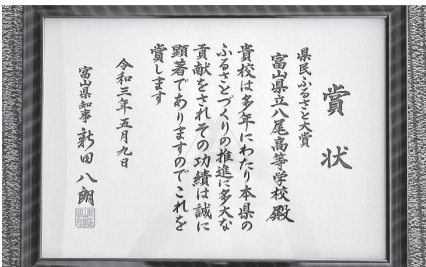 賞状
県民ふるさと大賞
富山県立八尾高等学校殿
貴校は多年にわたり本県の
ふるさとづくりの推進に多大な
貢献をされその功績は誠に
顕著でありますのでこれを
賞します
令和三年五月九日
富山県知事 新田八朗